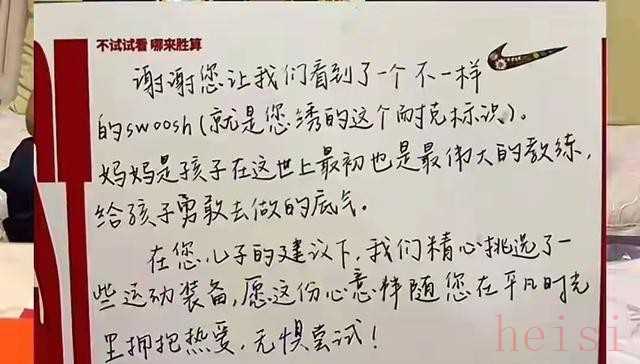 不试试看 哪来胜算
谢谢您让我们看到了一个不一样
的swoosh(就是您绣的这个耐克标识)。
妈妈是孩子在这世上最初也是最伟大的教练,
给孩子勇敢去做的底气。
在您儿子的建议下,我们精心挑选了一
些运动装备,愿这份心意伴随您在平凡时光
里拥抱热爱,无惧尝试!
heisi